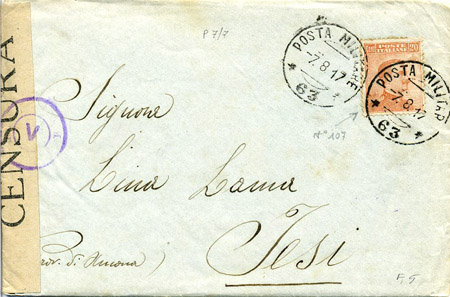 P 7/7
POSTE ITALIANE 20
POSTA MILITARE
-7.8.17
* 63 *
POSTA MILITAR
-7.8.17
* 63 *
N° 107
CENSURA
V
Signora
Lina Lama
Jesi
rov. di Ancona)
F. 5